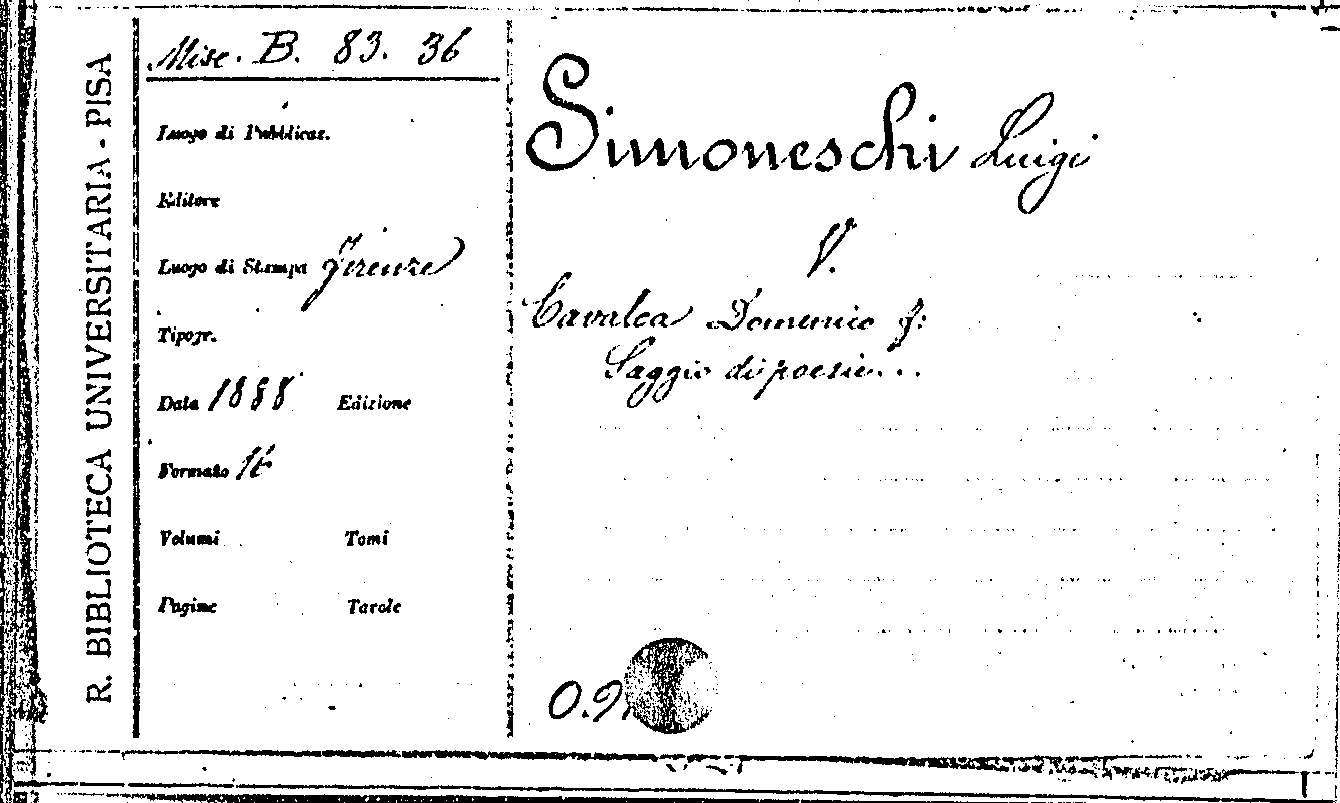 R. BIBLIOTECA UNIVERSITARIA - PISA
Misc. B. 83. 36
Luogo di Pubblicaz.
Editore
Luogo di Stampa Firenze
Tipogr.
Data 1888 Edizione
Formato 16
Volumi Tomi
Pagine Tavole
Simoneschi Luigi
V.
Cavalca Domenico f:
Saggio di poesie...
0.9